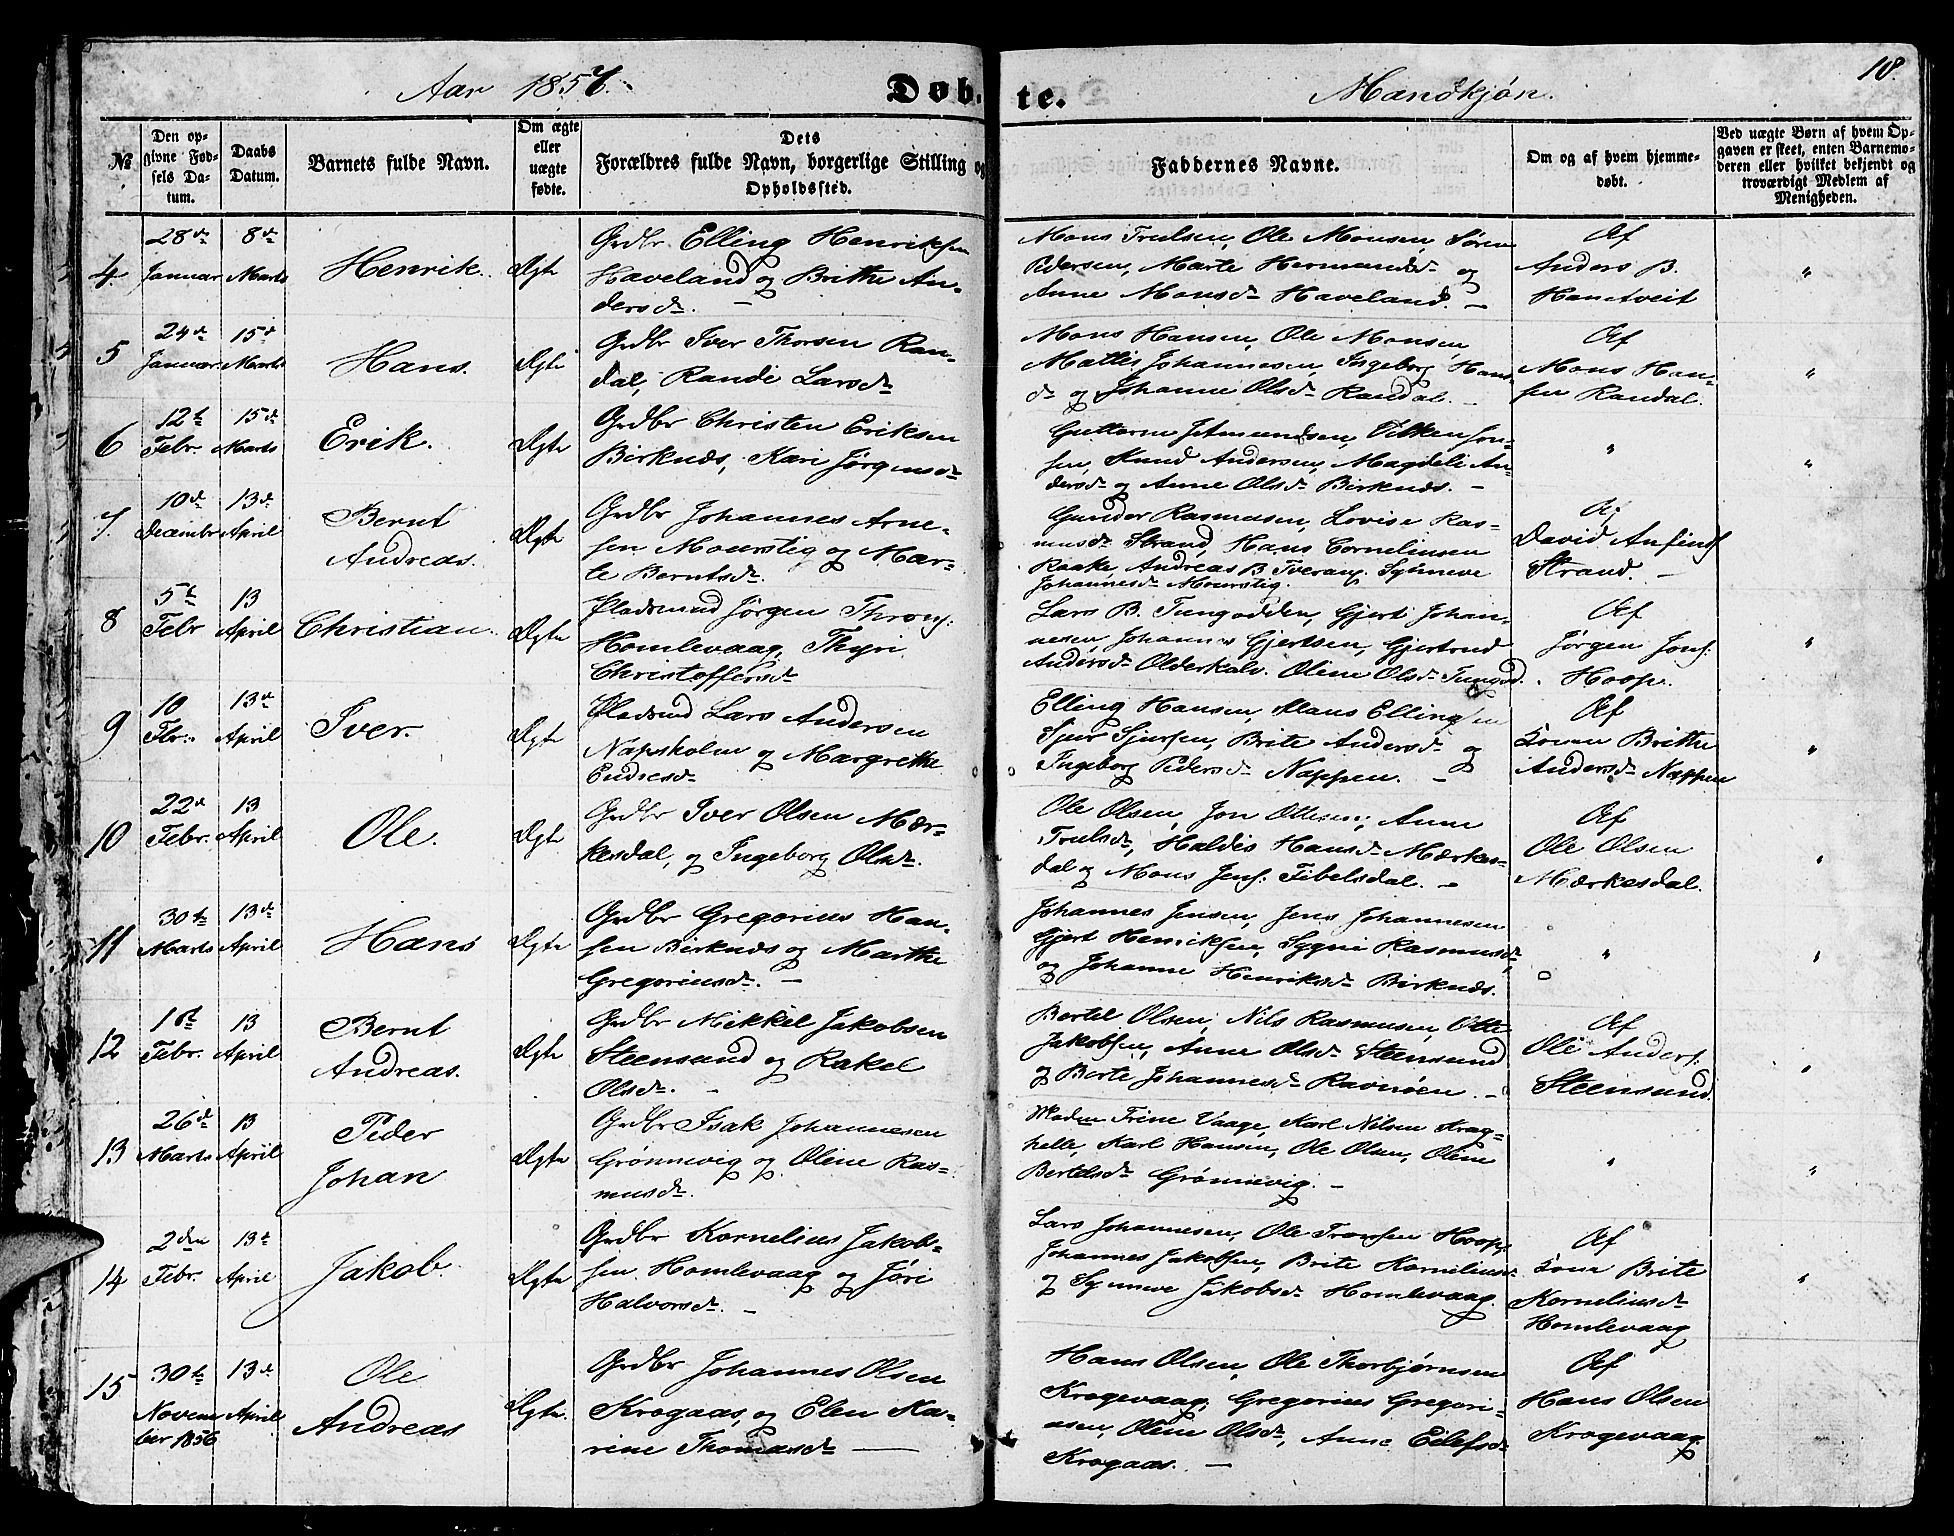 Aar 1857. Døb-
te. Mandkjøn. 18.
№
Den op-
givne Fød-
sels Da-
tum.
Daabs
Datum.
Barnets fulde Navn.
Om ægte
eller
uægte
fødte.
Dets
Forældres fulde Navn, borgerlige Stilling og
Opholdssted.
Faddernes Navne.
Om og af hvem hjemme-
døbt.
Ved uægte Børn af hvem Op-
gaven er skeet, enten Barnemo-
deren eller hvilket bekjendt og
troværdigt Medlem af
Menigheden.
4
28de
Januar
8de
Marts
Henrik.
Ægte
Grdbr Elling Henriksen
Haveland og Brithe An-
dersdr. —
Mons Trulsen, Ole Monsen, Søren
Pedersen, Marte Hermundsdr og
Anne Monsdr Haveland. —
Af
Anders B.
"
5
24de
Januar
15d
Marts
Hans.
Ægte
Grdbr Iver Thorsen Ran-
dal, Rande Larsdr
Mons Hansen, Ole Monsen
Mattis Johannesen, Ingeborg Hans
dr og Johanne Olsdr Randal. —
Af
Mons Han-
sen Randal.
"
6
12t
Febr.
15de
Marts
Erik.
Ægte
Grdbr Christen Eriksen
Birknes, Kari Jørgensdr
Guttorm Amundsen, Vilken Jon-
sen, Knud Andersen, Magdeli An-
dersdr og Anne Olsdr Birknes. —
"
"
7.
10de
Decembr
13de
April
Bernt
Andreas.
Ægte
Grdbr Johannes Arne-
sen Mourstig og Mar-
te Berntsdr.
Gunder Rasmusen, Lovise Ras-
musdr Strand, Hans Cornelinsen
Raake Andreas B. Tverang Synneve
Johannesdr Mourstig.
Af
David Anfinds
Strand. —
8
5t
Febr
13
April
Christian.
Ægte
Pladsmand Jørgen Throns.
Homlevaag, Thyri
Christoffersdr
Lars B. Tungodden, Gjert Johan-
nesen, Johannes Gjertsen, Gjertrud
Andersdr Olderkalv. Oline Olsdr Tungod.
Af
Jørgen Jons.
Hoop.
"
9
10
Fbr.
13de
April
Iver.
Ægte
Pladsmd Lars Andersen
Napsholm og Margrethe
Endresdr
Elling Hansen, Klaus Ellingsen
Sjur Sjursen, Brite Andersdr og
Ingeborg Pedersdr Nappen. —
Af
Konen Brithe
Andersdr Nappen
"
10
22d
Febr.
13
April
Ole.
Ægte
Grdbr Iver Olsen Mær-
kesdal, og Ingeborg Olsdr.
Ole Olsen, Jon Ottesen, Anne
Trulsdr, Haldis Hansdr Mærkes-
dal og Mons Jens. Tibelsdal. —
Af
Ole Olsen
Mærkesdal.
"
11
30te
Marts
13de
April
Hans
Ægte
Grdbr Gregorius Han-
sen Birknes og Marthe
Gregoriusdr. —
Johannes Jensen, Jens Johannesen
Gjert Henriksen, Sygni Rasmusdr,
og Johanne Henriksdr Birknes.
"
"
12
16t
Febr.
13
April
Bernt
Andreas.
Ægte
Grdbr Mikkel Jakobsen
Steensund og Rakel
Olsdr. —
Bertel Olsen, Nils Rasmusen, Otte
Jakobsen, Anne Olsdr Steensund
og Berte Johannesdr Ravnøen. —
Af
Ole Anders.
Steensund.
"
13
26de
Marts
13
April
Peder
Johan
Ægte
Grdbr Isak Johannesen
Grønnevig og Oline Ras-
musdr.
Madm Trine Vaage, Karl Nilsen Krag-
helle, Karl Hansen, Ole Olsen, Oline
Bertelsdr Grønnevig. —
"
"
14
2den
Febr.
13t
April
Jakob.
Ægte
Grdbr Kornelius Jakob-
sen Homlevaag og Jøri
Halvorsdr. —
Lars Johannesen, Ole Tronsen Hoop,
Johannes Jakobsen, Brite Korneliusdr
og Synneve Jakobsdr Homlevaag.
Af
Kone Brite
Korneliusdr
Homlevaag
"
15
30te
Novem
ber 1856
13de
April
Ole
Andreas
Ægte.
Grdbr Johannes Olsen
Krogaas, og Elen Ka-
rine Thomasdr —
Hans Olsen, Ole Thorbjørnsen
Krogevaag, Gregorius Gregori-
usen, Oline Olsdr, Anne Eilefsdr
Krogaas. —
Af
Hans Olsen
Krogevaag.